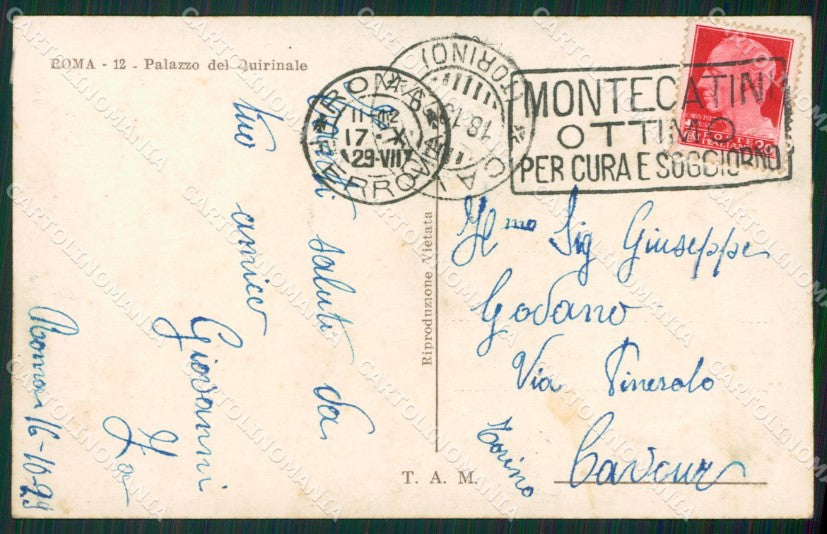 ROMA - 12 - Palazzo del Quirinale
saluti da
tuo amico
Giovanni
Roma 16-10-29
Riproduzione Vietata
T. A. M.
ROMA
FERROVIA
11-12
17 · X
29-VII
(TORINO)
18.10
MONTECATINI
OTTIMO
PER CURA E SOGGIORNO
Ill.mo Sig Giuseppe
Godano
Via Pinerolo
Cavour
Torino
CARTOLINOMANIA